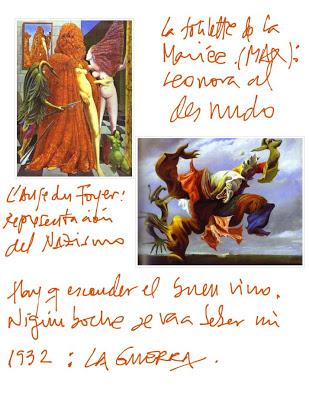 La toilette de La
Mariée. (MAX):
Leonora al
desnudo
L'Ange du Foyer:
representación
del NAZismo
Hay q esconder el buen vino.
Nigún boche se va a beber mi
1932: LA GUERRA.